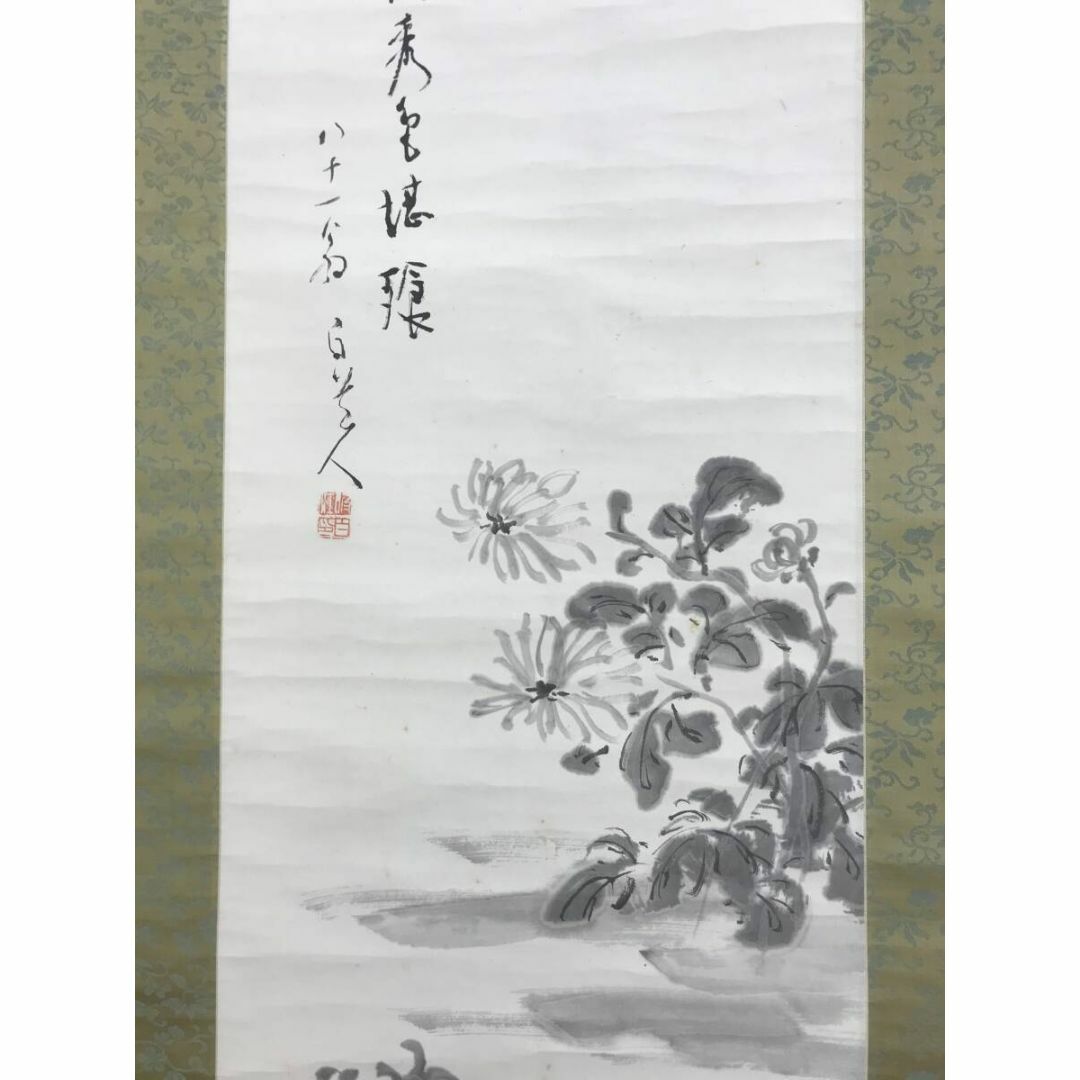 秀色堪餐
八十一翁 道人